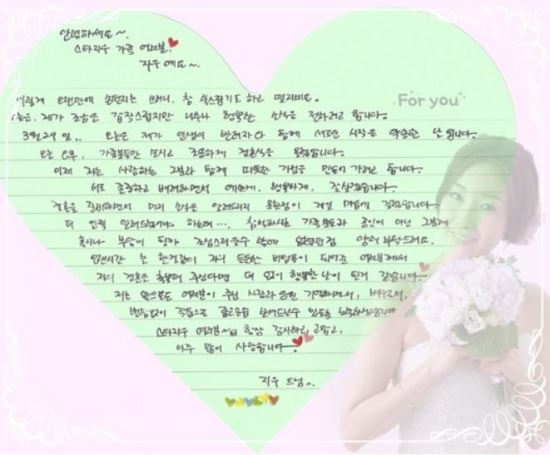 안녕하세요~.
스타지우 가족 여러분.
지우예요~.
이렇게 오랜만에 손편지를 쓰려니, 참 쑥스럽기도 하고 떨리네요.
For you
오늘은 제가 조금은 갑작스럽지만 너무나 행복한 소식을 전하려고 합니다.
3월 29일.. 오늘은 제가 인생의 반려자와 함께 새로운 시작을 약속한 날입니다.
오늘 오후, 가족분들만 모시고 조용하게 결혼식을 합니다.
이제 저는 사랑하는 그분과 함께 따뜻한 가정을 만들어 가려고 합니다.
서로 존중하고 배려하면서 예쁘게, 행복하게, 잘 살겠습니다.
결혼을 준비하면서 미리 소식을 알려드리지 못한 점이 제일 마음에 걸렸습니다.
더 일찍 알려드렸어야 하는데..., 참석하시는 가족분들과 공인이 아닌 그분께
혹시나 부담이 될까 조심스러울 수 밖에 없었던 점 양해 부탁드려요.
오랜시간 늘 한결같이 저의 든든한 버팀목이 되어주신 여러분께서
저의 결혼을 축복해 주신다면 더 없이 행복한 날이 될 것 같습니다.
저는 앞으로도 여러분이 주신 사랑과 응원 기억하면서,
변함없이 좋은 모습 보여드릴 수 있도록 노력하겠습니다.
스타지우 여러분~ 항상 감사하고 고맙고,
아주 많이 사랑합니다.
지우 드림~.